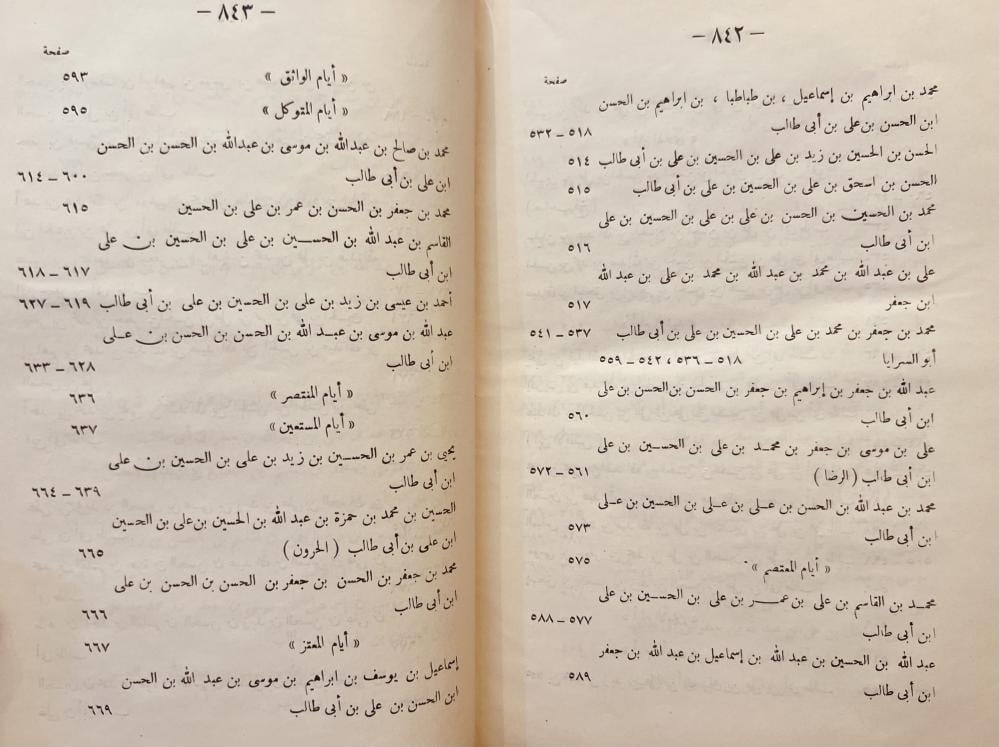 — ٨٤٢ —
صفحة
محمد بن ابراهيم بن إسماعيل ، بن طباطبا ، بن ابراهيم بن الحسن
ابن الحسن بن على بن أبى طالب ٥١٨ – ٥٣٢
الحسن بن الحسين بن زيد بن على بن الحسين بن على بن أبى طالب ٥١٤
الحسن بن اسحق بن على بن الحسين بن على بن أبى طالب ٥١٥
محمد بن الحسين بن الحسن بن على بن على بن الحسين بن على
ابن أبى طالب ٥١٦
على بن عبد الله بن محمد بن عبد الله بن محمد بن على بن عبد الله
ابن جعفر ٥١٧
محمد بن جعفر بن محمد بن على بن الحسين بن على بن أبى طالب ٥٣٧ – ٥٤١
أبو السرايا ٥١٨ – ٥٣٦ ، ٥٤٢ – ٥٥٩
عبد الله بن جعفر بن إبراهيم بن جعفر بن الحسن بن الحسن بن على
ابن أبى طالب ٥٦٠
على بن موسى بن جعفر بن محمد بن على بن الحسين بن على
ابن أبى طالب ( الرضا ) ٥٦١ – ٥٧٢
محمد بن عبد الله بن الحسن بن على بن على بن الحسين بن على
ابن أبى طالب ٥٧٣
« أيام المعتصم » ٥٧٥
محمد بن القاسم بن على بن عمر بن على بن الحسين بن على
ابن أبى طالب ٥٧٧ – ٥٨٨
عبد الله بن الحسين بن عبد الله بن إسماعيل بن عبد الله بن جعفر
ابن أبى طالب ٥٨٩
— ٨٤٣ —
صفحة
« أيام الواثق » ٥٩٣
« أيام المتوكل » ٥٩٥
محمد بن صالح بن عبد الله بن موسى بن عبد الله بن الحسن بن الحسن
ابن على بن أبى طالب ٦٠٠ – ٦١٤
محمد بن جعفر بن الحسن بن عمر بن على بن الحسين ٦١٥
القاسم بن عبد الله بن الحسين بن على بن الحسين بن على
ابن أبى طالب ٦١٧ – ٦١٨
أحمد بن عيسى بن زيد بن على بن الحسين بن على بن أبى طالب ٦١٩ – ٦٢٧
عبد الله بن موسى بن عبد الله بن الحسن بن الحسن بن على
ابن أبى طالب ٦٢٨ – ٦٣٣
« أيام المنتصر » ٦٣٦
« أيام المستعين » ٦٣٧
يحيى بن عمر بن الحسين بن زيد بن على بن الحسين بن على
ابن أبى طالب ٦٣٩ – ٦٦٤
الحسين بن محمد بن حمزة بن عبد الله بن الحسين بن على بن الحسين
ابن على بن أبى طالب ( الحرون ) ٦٦٥
محمد بن جعفر بن الحسن بن جعفر بن الحسن بن الحسن بن على
ابن أبى طالب ٦٦٦
« أيام المعتز » ٦٦٧
إسماعيل بن يوسف بن ابراهيم بن موسى بن عبد الله بن الحسن
ابن الحسن بن على بن أبى طالب ٦٦٩